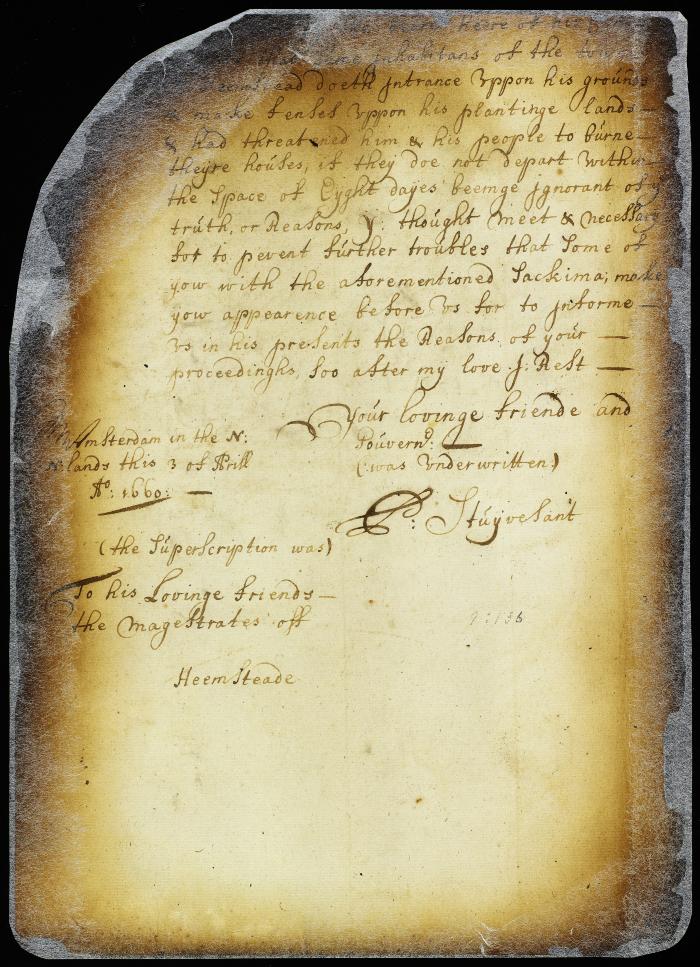 heere of his
that some Inhabitans of the towne
Heemstead doeth Intrance vppon his grounds
& make fenses vppon his plantinge lands —
& had threatened him & his people to burne —
theyre houses, if they doe not depart within
the space of Eyght dayes beeinge Ignorant of ye
truth, or Reasons, I: thought meet & necessary
for to pevent further troubles that some of
yow with the aforementioned Sackima, make
yow appearence before vs for to Informe —
vs in his presents the Reasons of your —
proceedinghs, soo after my love I: Rest —
Your lovinge friende and
Gouvern:r —
(: was vnderwritten:)
P: Stuyvesant
Amsterdam in the N:
N:lands this 3 of Aprill
Ao: 1660: —
(the Superscription was)
To his Lovinge friends —
the magestrates off
Heemsteade
9:138